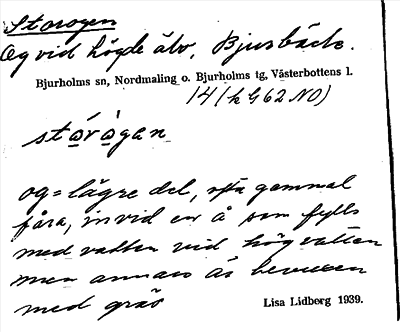 Storogen
Og vid högde älv, Bjurbäck.
Bjurholms sn, Nordmaling o. Bjurholms tg, Västerbottens l.
14 (k G 62 NO)
stórògan
og = lägre del, ofta gammal
fåra, invid en å som fylls
med vatten vid högvatten
men annars är bevuxen
med gräs
Lisa Lidberg 1939.